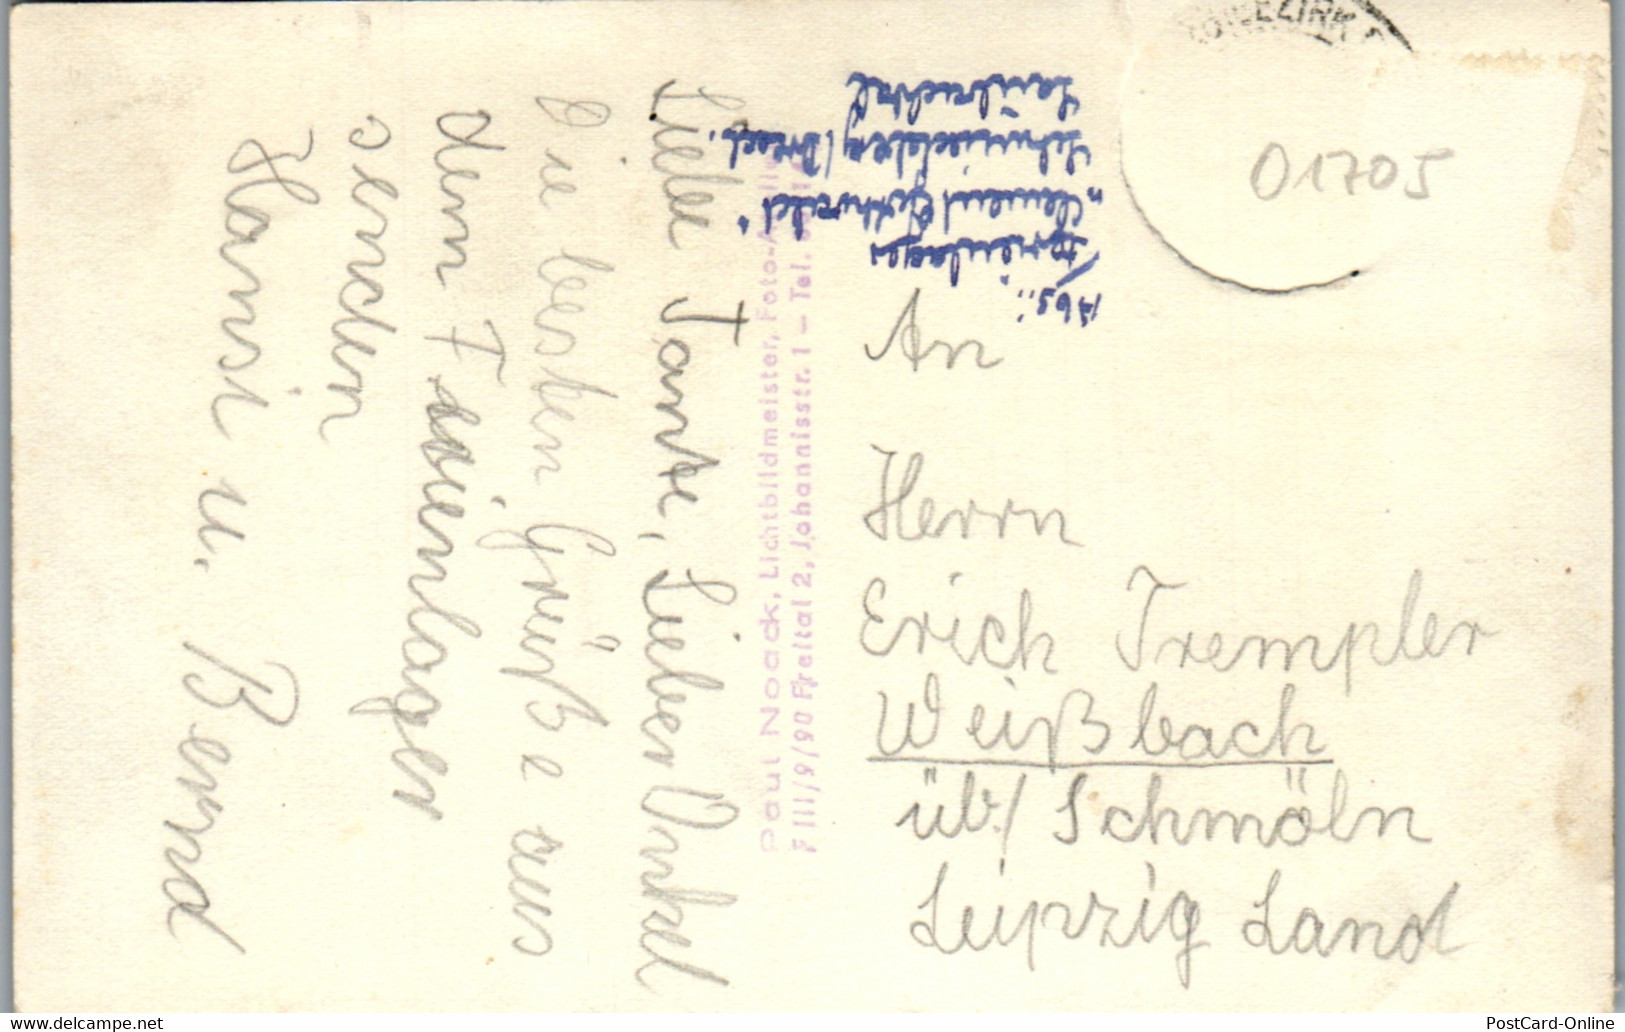 Liebe Tante, Lieber Onkel
Die besten Grüße aus
dem Ferienlager
senden
Hansi u. Bernd
Paul Noack, Lichtbildmeister, Foto-A
F III/9/90 Freital 2, Johannisstr. 1 – Tel.
Abs.:
Ferienlager
"Clement Gottwald"
Schmiedeberg/Dresd.
An
Herrn
Erich Trempler
Weißbach
üb/ Schmöln
Leipzig Land
BEZIRK
01705
PostCard-Online